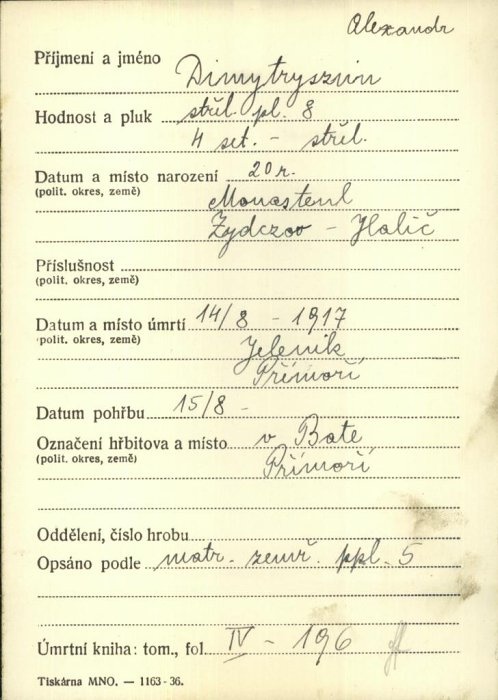 Alexandr
Příjmení a jméno Dimytryszun
Hodnost a pluk střel. pl. 8
4 set. - střel.
Datum a místo narození 20 r.
(polit. okres, země) Monasteul
Zydczov - Halič
Příslušnost
(polit. okres, země)
Datum a místo úmrtí 14/8 - 1917
(polit. okres, země) Jelenik
Přímoří
Datum pohřbu 15/8 -
Označení hřbitova a místo v Bate
(polit. okres, země) Přímoří
Oddělení, číslo hrobu
Opsáno podle matr. zemř. ppl. 5
Úmrtní kniha: tom., fol. IV - 196
Tiskárna MNO. — 1163-36.